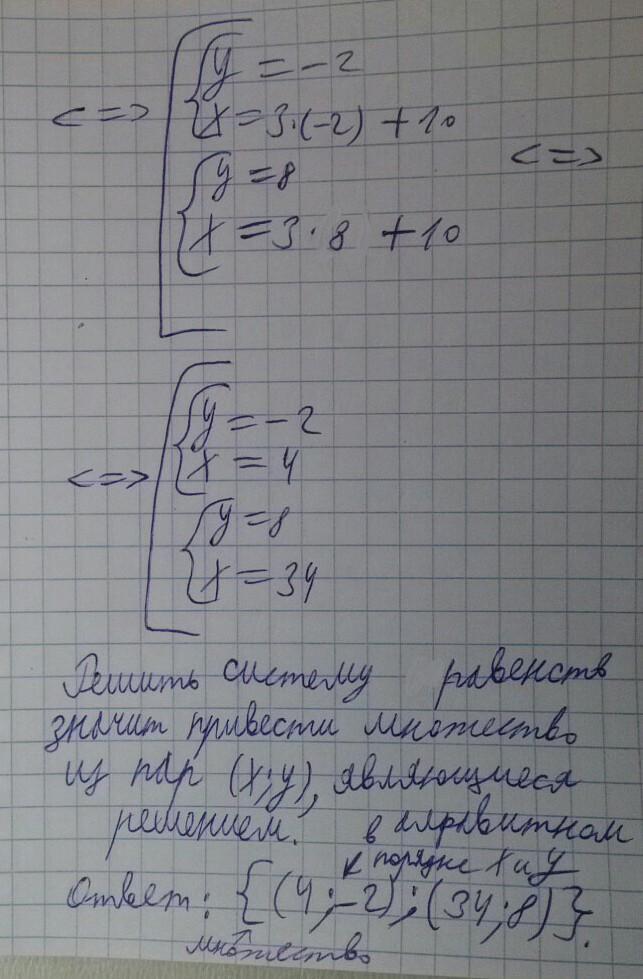 y = -2
<=> x = 3·(-2) + 10 <=>
y = 8
x = 3 · 8 + 10
y = -2
<=> x = 4
y = 8
x = 34
Решить систему равенств
значит привести множество
из пар (x;y), являющиеся
решением. в алфавитном
порядке x и y
Ответ: {(4;-2);(34;8)}.
множество